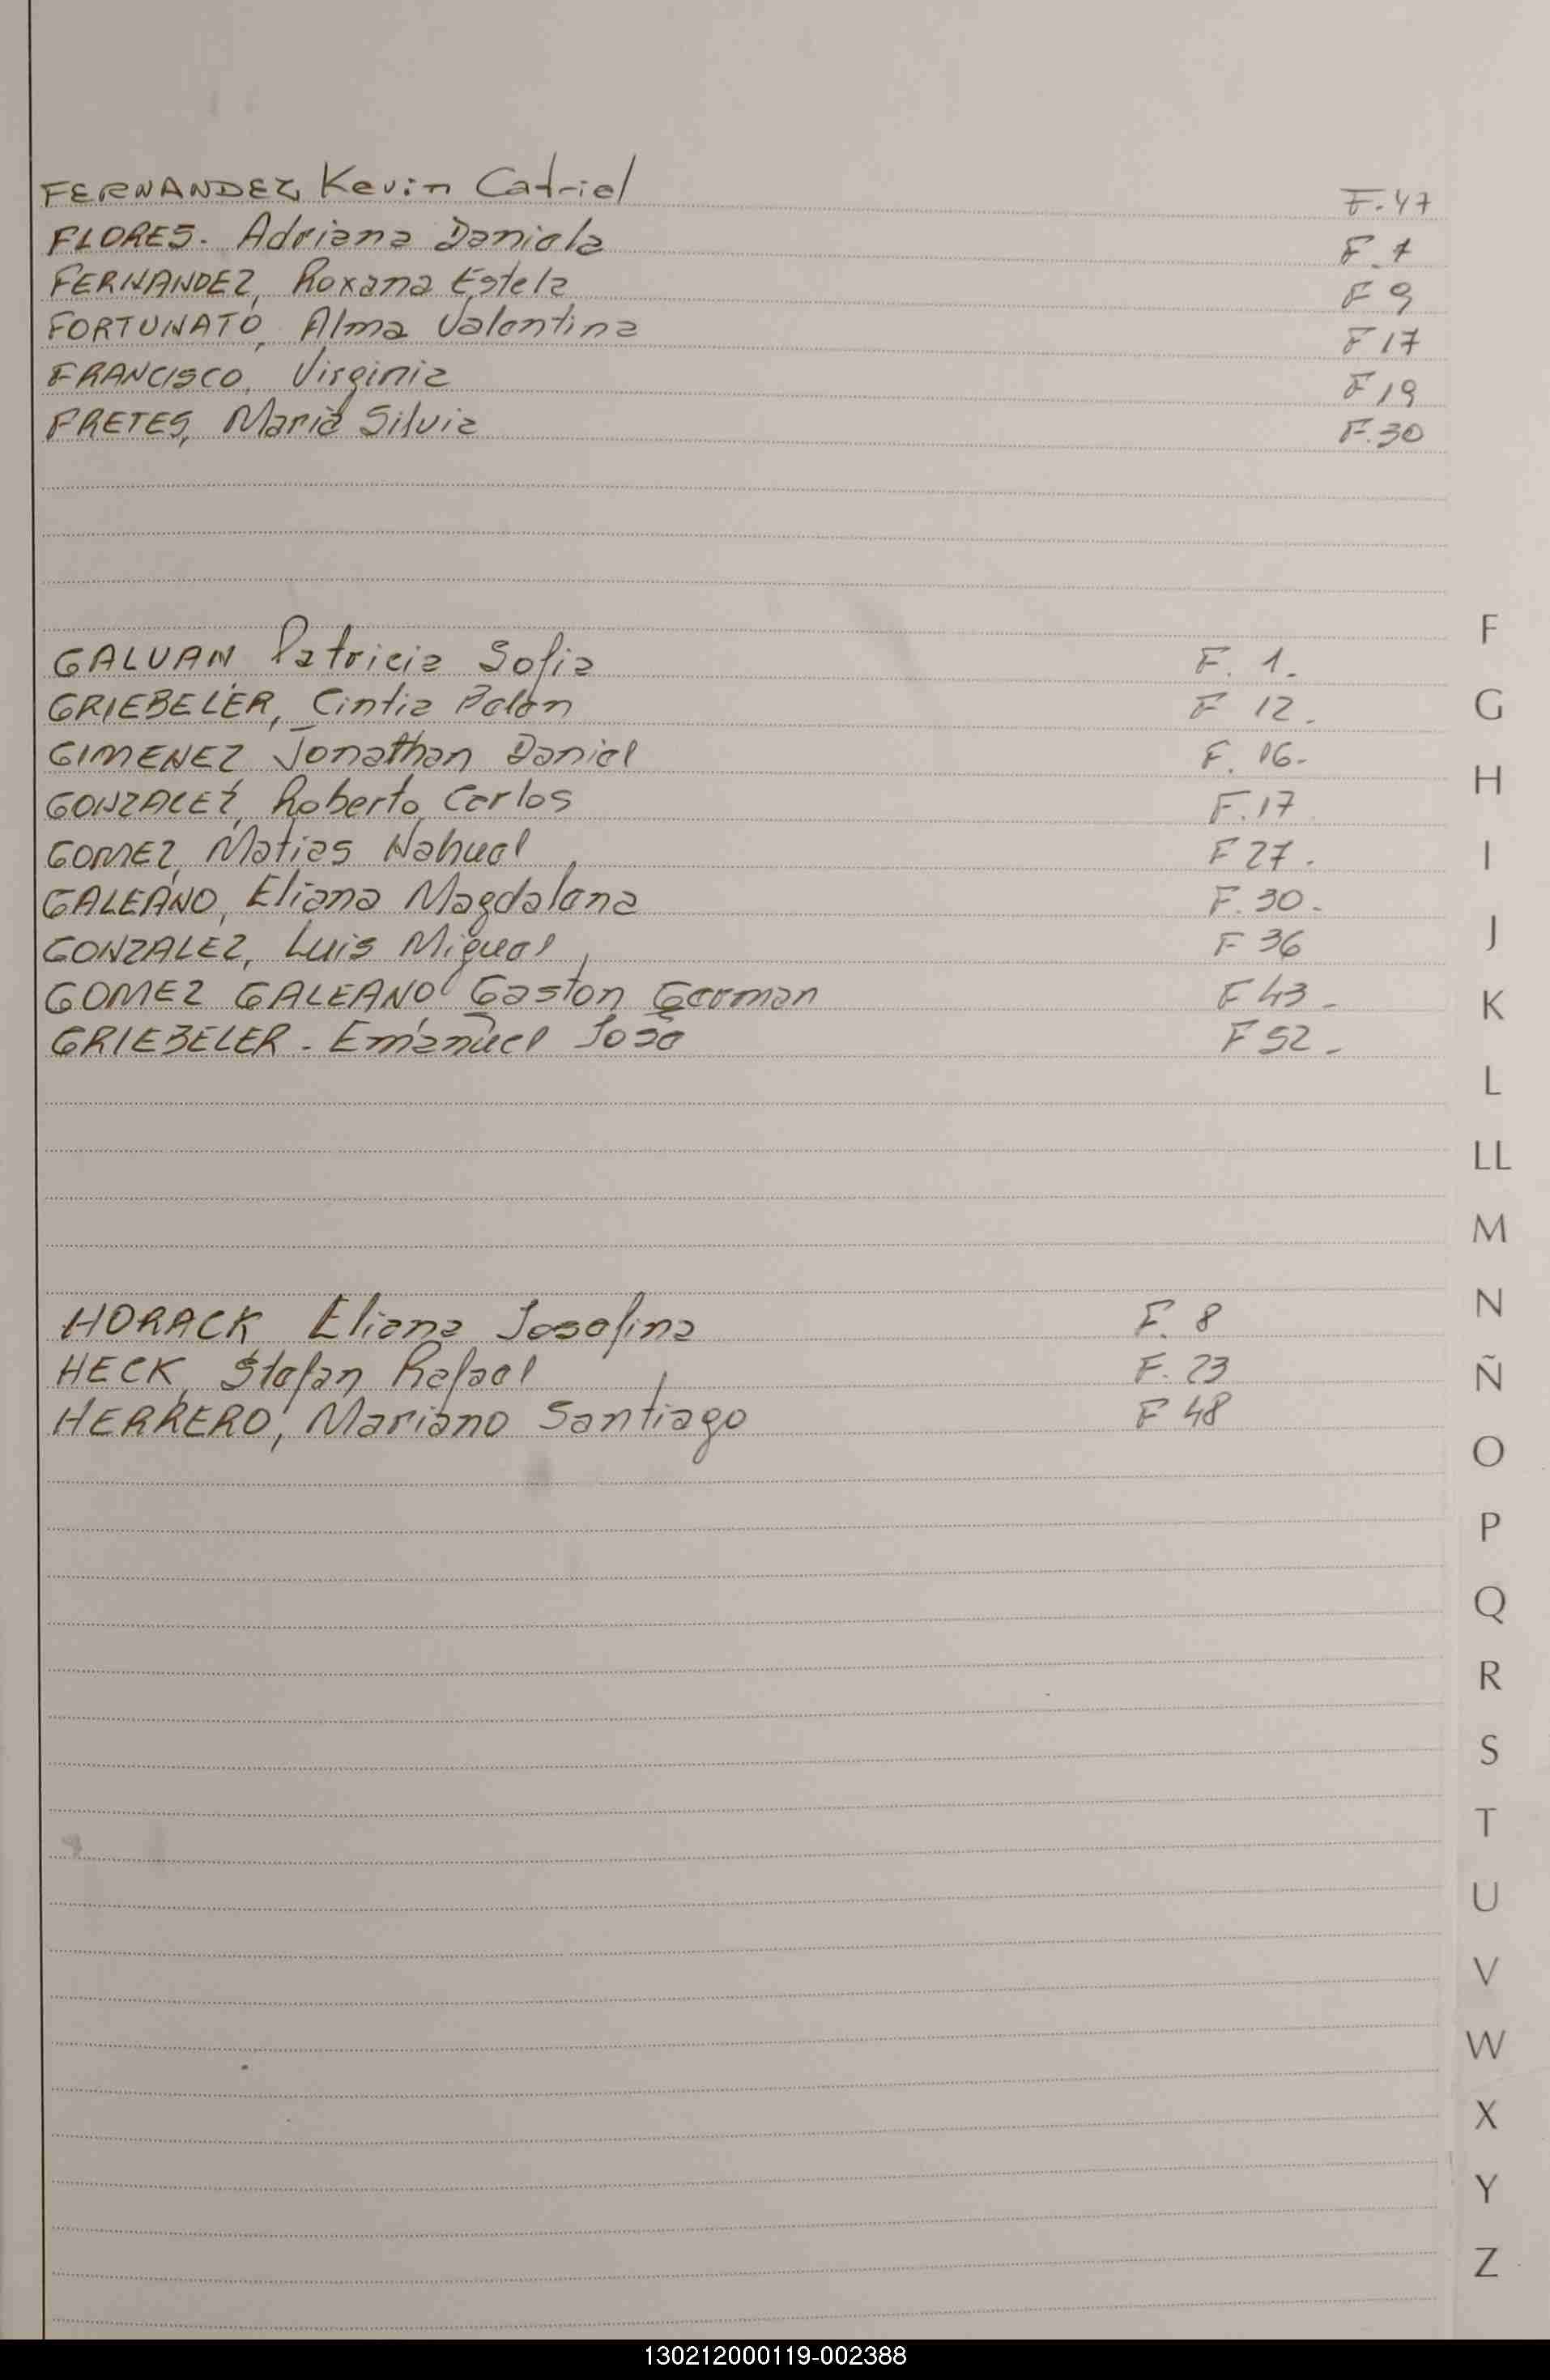 FERNANDEZ, Kevin Catriel F.47
FLORES. Adriana Daniela F. 7
FERNANDEZ, Roxana Estela F 9
FORTUNATO, Alma Valentina F 17
FRANCISCO, Virginia F 19
FRETES, Maria Silvia F.30
GALVAN, Patricia Sofia F. 1.
GRIEBELER, Cintia Belen F 12.
GIMENEZ Jonathan Daniel F. 16-
GONZALEZ, Roberto Carlos F.17
GOMEZ, Matias Nahuel F 27.
GALEANO, Eliana Magdalena F. 30-
GONZALEZ, Luis Miguel F 36
GOMEZ GALEANO Gaston German F 43-
GRIEBELER - Emanuel José F 52-
HORACK Eliana Josefina F. 8
HECK, Stefan Rafael F. 23
HERRERO, Mariano Santiago F 48
F
G
H
I
J
K
L
LL
M
N
Ñ
O
P
Q
R
S
T
U
V
W
X
Y
Z
130212000119-002388